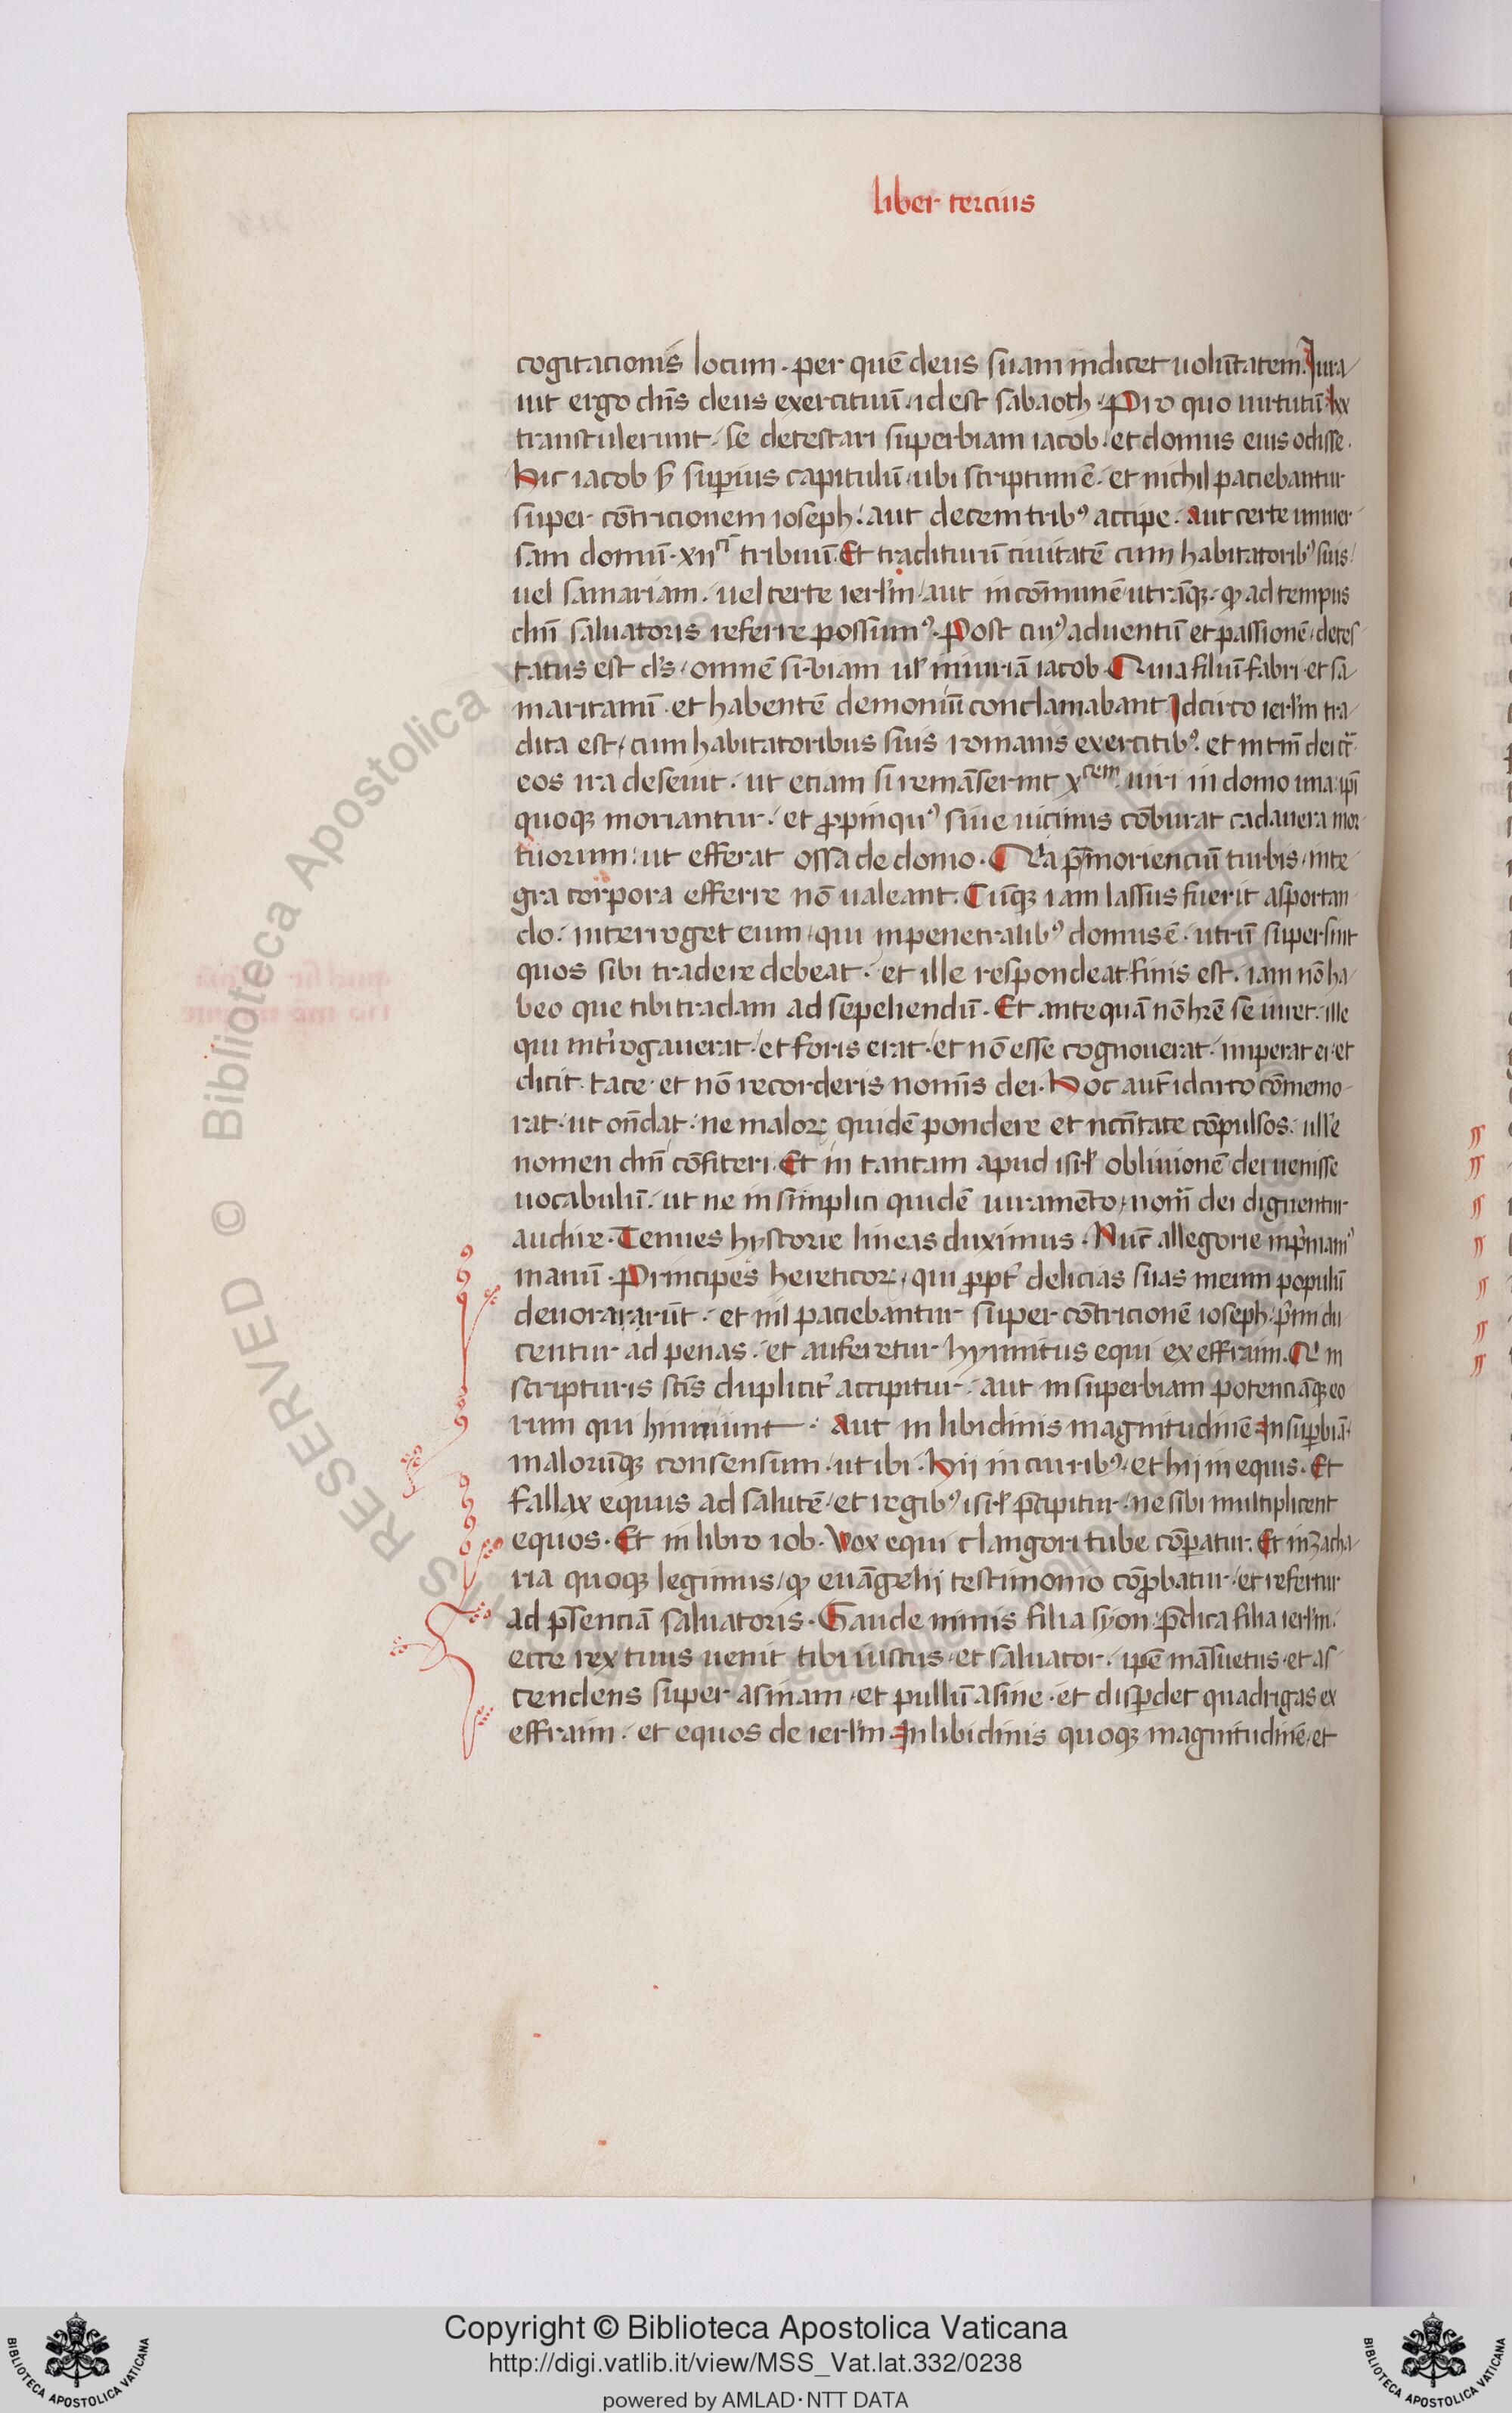 liber tercius
cogitacionis locum · per quē deus suam indicet uolūtatem. Iura
uit ergo dn̄s deus exercituū · id est sabaoth · Pro quo uirtutū lxx
transtulerunt · se detestari superbiam iacob · et domus eius odisse ·
Hic iacob sʳ superius capitulū · ubi scriptum ē · et nichil paciebantur
super cōtricionem ioseph · aut decem tribꝰ accipe · Aut certe uniuer
sam domū · xiiᶜⁱ tribuū · Et traditurū ciuitatē cum habitatoribꝰ suis
uel samariam · uel certe ierlʼm · aut in cōmunē utrāqꝫ · qͥ ad tempus
dn̄i saluatoris referre possumꝰ · Post cuiꝰ aduentū et passionē · detes
tatus est dʼs · omnē suꝑbiam ul̓ iniuriā iacob · Quia filiū fabri · et sa
maritanū · et habentē demoniū conclamabant · Idcirco ierlʼm tra
dita est · cum habitatoribus suis romanis exercitibꝰ · et in tm̄ dei ct̄
eos ira deseuit · ut etiam si remāserint xᶜᵉᵐ uiri in domo una · ip̄i
quoqꝫ moriantur · et ꝓpinquꝰ siue uicinus cōburat cadauera mor
tuorum · ut efferat ossa de domo · Na p̄ moriencium turbis · inte
gra corpora efferre nō ualeant · Cūqꝫ iam lassus fuerit asportan
do · interroget eum · qui in penetralibꝰ domus ē · utrū supersint
quos sibi tradere debeat · et ille respondeat · finis est · iam nō ha
beo que tibi tradam ad sepeliendū · Et antequā nō hr̄e se iuret · ille
qui intʼrogauerat · et foris erat · et nō esse cognouerat · imperat ei · et
dicit · tace · et nō recorderis nomīs dei · Hoc aut̄ idcirco cōmemo
rat · ut on̄dat · ne maloꝝ quidē pondere et nc̄c̄itate cōpulsos · uelle
nomen dn̄i cōfiteri · Et in tantam apud isrl̓ obliuionē dei uenisse
uocabulū · ut ne in simplici quidē iuramēto · nomē dei dignentur
audire · Tenues hystorie lineas duximus · Nuc̄ allegorie inpͥmamꝰ
manū · Principes hereticoꝝ · qui ꝓpt̓ delicias suas meum populū
deuorararūt · et nil paciebantur super cōtricionē ioseph · pͥmi du
centur ad penas · et auferetur hynnitus equi ex effraim · Qͥ in
scripturis sc̄is duplicit̓ accipitur · aut in superbiam potenciāqꝫ eo
rum qui hinniunt · Aut in libidinis magnitudinē · In suꝑbiā
malorūqꝫ consensum · ut ibi · Hii in curribꝰ · et hij in equis · Et
fallax equus ad salutē · et regibꝰ isrl̓ p̄cipitur · ne sibi multiplicent
equos · Et in libro iob · Vox equi clangori tube cōꝑatur · Et in zacha
ria quoqꝫ legimus · qͥ euāgelij testimonio cōꝓbatur · et refertur
ad p̄senciā saluatoris · Gaude nimis filia syon · p̄dica filia ierlʼm ·
ecce rex tuus uenit tibi iustus · et saluator · ip̄e māsuetus · et as
cendens super asinam · et pullū asine · et disꝑdet quadrigas ex
effraim · et equos de ierlʼm · In libidinis quoqꝫ magnitudinē · et
RESERVED © Biblioteca Apostolica Vaticana
Copyright © Biblioteca Apostolica Vaticana
http://digi.vatlib.it/view/MSS_Vat.lat.332/0238
powered by AMLAD · NTT DATA
BIBLIOTECA APOSTOLICA VATICANA
BIBLIOTECA APOSTOLICA VATICANA